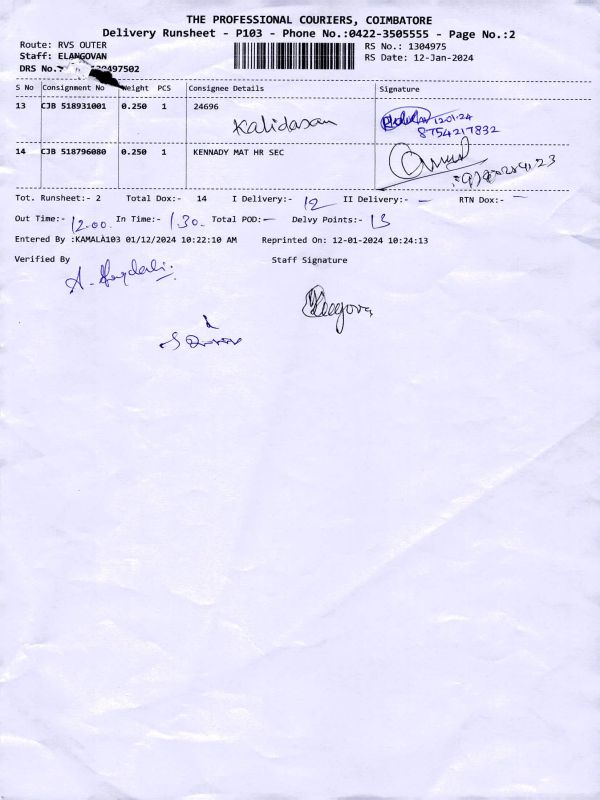 THE PROFESSIONAL COURIERS, COIMBATORE
Delivery Runsheet - P103 - Phone No.:0422-3505555 - Page No.:2
Route: RVS OUTER
RS No.: 1304975
Staff: ELANGOVAN
RS Date: 12-Jan-2024
DRS No.
S No Consignment No Weight PCS Consignee Details Signature
13 CJB 518931001 0.250 1 24696
Kalidasan
12.01.24
8754217832
14 CJB 518796080 0.250 1 KENNADY MAT HR SEC
Tot. Runsheet:- 2 Total Dox:- 14 I Delivery:- 12 II Delivery:- — RTN Dox:- —
Out Time:- 12.00. In Time:- 1.30. Total POD:- — Delvy Points:- 13
Entered By :KAMALA103 01/12/2024 10:22:10 AM Reprinted On: 12-01-2024 10:24:13
Verified By Staff Signature